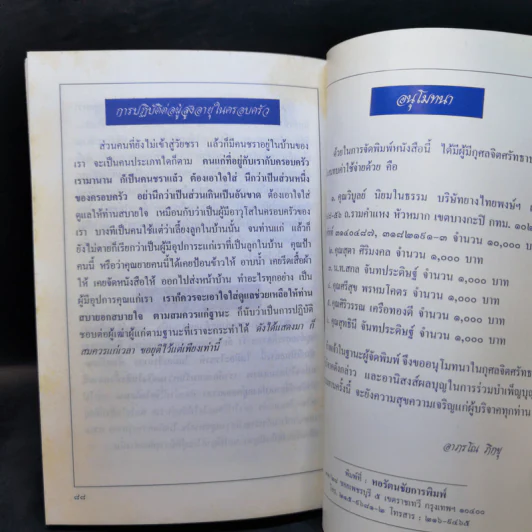 การปฏิบัติต่อผู้สูงอายุในครอบครัว
ส่วนคนที่ยังไม่เข้าสู่วัยชรา แล้วก็มีคนชราอยู่ในบ้านของ
เรา จะเป็นคนประเภทใดก็ตาม คนแก่ที่อยู่กับเรากับครอบครัว
เรามานาน ก็เป็นคนชราแล้ว ต้องเอาใจใส่ นึกว่าเป็นส่วนหนึ่ง
ของครอบครัว อย่านึกว่าเป็นส่วนเกินเป็นอันขาด ต้องเอาใจใส่
ดูแลให้ท่านสบายใจ เหมือนกับว่าเป็นผู้มีอาวุโสในครอบครัวของ
เรา บางทีเป็นคนใช้แต่ว่าเลี้ยงลูกในบ้านนั้น จนท่านแก่ แล้วก็
ยังไม่ตายก็เรียกว่าเป็นผู้มีอุปการะแก่เราที่เป็นลูกในบ้าน คุณป้า
คนนี้ หรือว่าคุณยายคนนี้ได้เคยป้อนข้าวให้ อาบน้ำ เคยรีดเสื้อผ้า
ให้ เคยจัดหนังสือให้ ออกไปส่งหน้าบ้าน ทำอะไรทุกอย่าง เป็น
ผู้มีอุปการคุณแก่เรา เราก็ควรจะเอาใจใส่ดูแลช่วยเหลือให้ท่าน
สบายอกสบายใจ ตามสมควรแก่ฐานะ ก็นับว่าเป็นการปฏิบัติ
ชอบต่อผู้เฒ่าผู้แก่ตามฐานะที่เราจะกระทำได้ ดังได้แสดงมา ก็
สมควรแก่เวลา ขอยุติไว้แต่เพียงเท่านี้
๔๘
อนุโมทนา
ด้วยในการจัดพิมพ์หนังสือนี้ ได้มีผู้มีกุศลจิตศรัทธา
ค่าใช้จ่ายด้วย คือ
๑. คุณวิบูลย์ นิยมในธรรม บริษัทยางไทยพงษ์ฯ
ถ.รามคำแหง หัวหมาก เขตบางกะปิ กทม.
๓๑๘๒๑๙๑-๓ จำนวน ๑๐,๐๐๐ บาท
คุณสุดา ศิริมงคล จำนวน ๑,๐๐๐ บาท
น.ท.สกล จันทประดิษฐ์ จำนวน ๑,๐๐๐ บาท
คุณศรีสุข พรามโคตร จำนวน ๑,๐๐๐ บาท
คุณศิริวรรณ เครือทองดี จำนวน ๑,๐๐๐ บาท
คุณสุทธินี จันทประดิษฐ์ จำนวน ๑,๐๐๐ บาท
ในฐานะผู้จัดพิมพ์ จึงขออนุโมทนาในกุศลจิตศรัทธา
ดังกล่าว และอานิสงส์ผลบุญในการร่วมบำเพ็ญบุญ
ครั้งนี้ จะยังความสุขความเจริญแก่ผู้บริจาคทุกท่าน
อาภรโณ ภิกขุ
พิมพ์ที่ : พอรัตนชัยการพิมพ์
ซอยเพชรบุรี ๕ เขตราชเทวี กรุงเทพฯ ๑๐๔๐๐
โทร. ๒๑๕-๙๖๘๑-๒ โทรสาร : ๒๑๖-๙๔๖๕